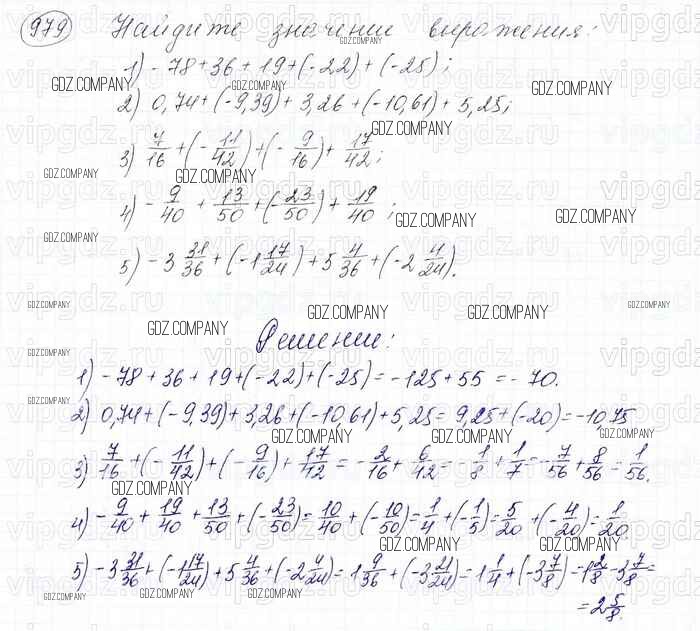 979 Найдите значение выражения:
1) -78+36+19+(-22)+(-25);
2) 0,74+(-9,39)+3,26+(-10,61)+5,25;
3) 7/16+(-11/42)+(-9/16)+17/42;
4) -9/40+13/50+(-23/50)+19/40;
5) -3 31/36+(-1 17/24)+5 4/36+(-2 4/24).
Решение:
1) -78+36+19+(-22)+(-25)=-125+55=-70.
2) 0,74+(-9,39)+3,26+(-10,61)+5,25=9,25+(-20)=-10,75
3) 7/16+(-11/42)+(-9/16)+17/42=-2/16+6/42=-1/8+1/7=-7/56+8/56=1/56.
4) -9/40+19/40+13/50+(-23/50)=10/40+(-10/50)=1/4+(-1/5)=5/20+(-4/20)=1/20.
5) -3 31/36+(-1 17/24)+5 4/36+(-2 4/24)=1 9/36+(-3 21/24)=1 1/4+(-3 7/8)=1 2/8-3 7/8=
=2 5/8.
GDZ.COMPANY
vipgdz.ru